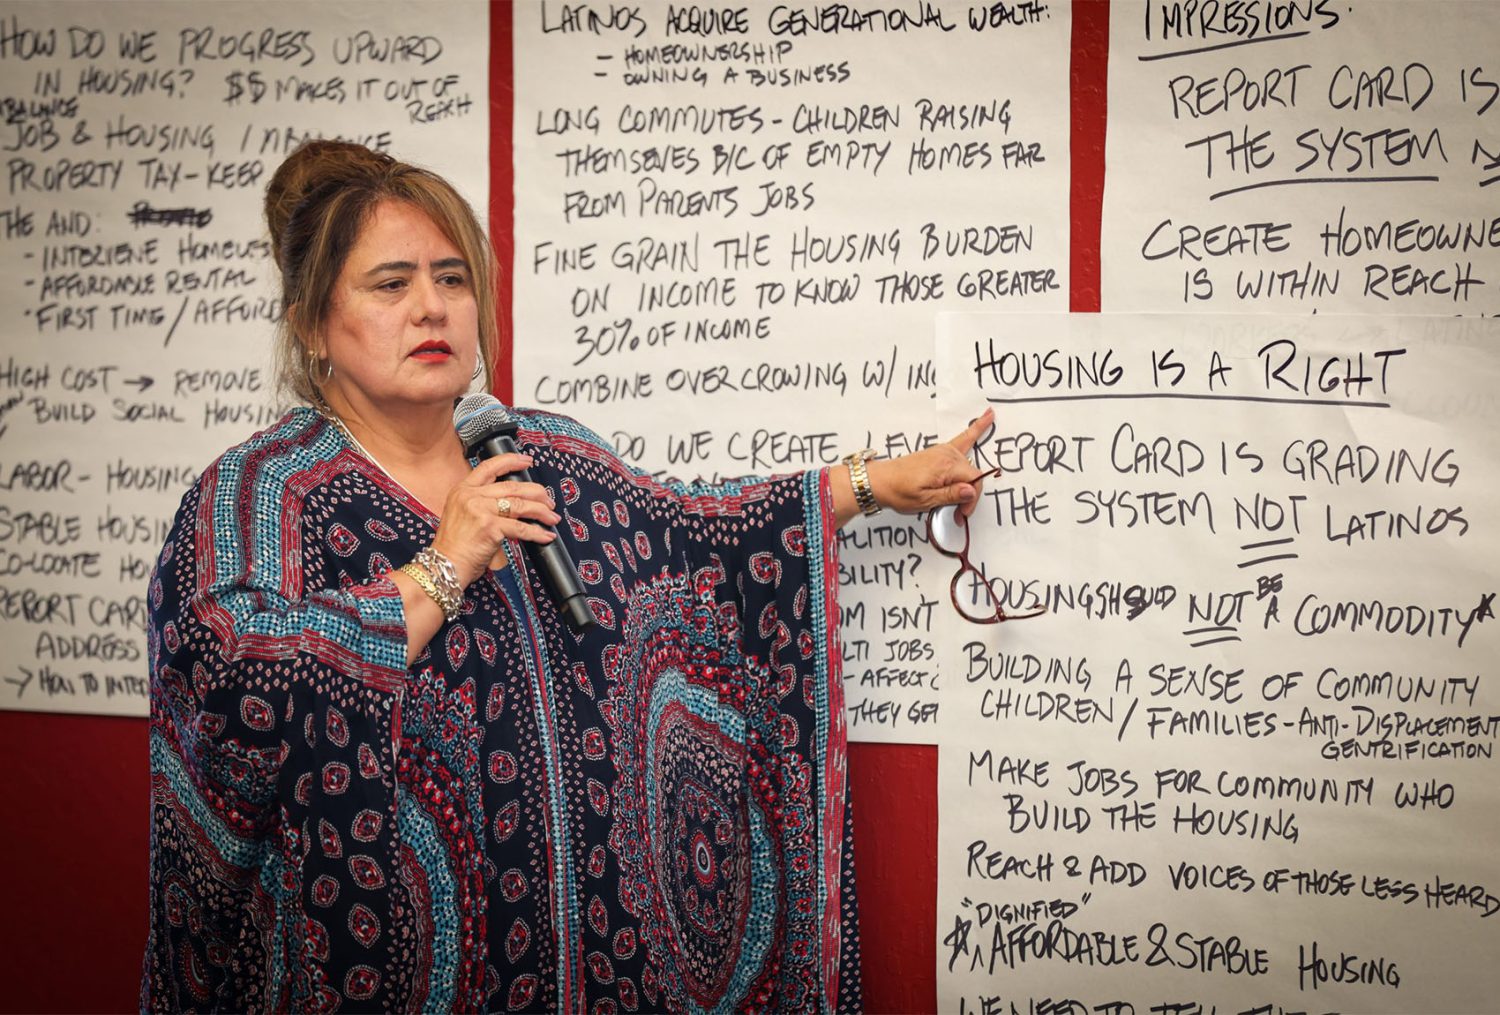 HOW DO WE PROGRESS UPWARD
IN HOUSING? $$ MAKES IT OUT OF
REACH
JOB & HOUSING IMBALANCE
PROPERTY TAX - KEEP
THE AND:
- INTERVENE HOMELES
- AFFORDABLE RENTAL
· FIRST TIME / AFFORD
HIGH COST → REMOVE
BUILD SOCIAL HOUSIN
LABOR - HOUSING
STABLE HOUSIN
CO-LOCATE HO
REPORT CAR
ADDRESS
→ HOW TO INTE
LATINOS ACQUIRE GENERATIONAL WEALTH:
- HOMEOWNERSHIP
- OWNING A BUSINESS
LONG COMMUTES - CHILDREN RAISING
THEMSEVES B/C OF EMPTY HOMES FAR
FROM PARENTS JOBS
FINE GRAIN THE HOUSING BURDEN
ON INCOME TO KNOW THOSE GREATER
30% OF INCOME
COMBINE OVERCROWING W/ IN
DO WE CREATE LEVE
ALITION
BILITY?
OM ISN'T
LTI JOBS
- AFFECT
THEY GET
IMPRESSIONS:
REPORT CARD IS
THE SYSTEM
CREATE HOMEOWNE
IS WITHIN REACH
HOUSING IS A RIGHT
REPORT CARD IS GRADING
THE SYSTEM NOT LATINOS
HOUSING SHOULD NOT BE A COMMODITY*
BUILDING A SENSE OF COMMUNITY
CHILDREN / FAMILIES - ANTI-DISPLACEMENT
GENTRIFICATION
MAKE JOBS FOR COMMUNITY WHO
BUILD THE HOUSING
REACH & ADD VOICES OF THOSE LESS HEARD
"DIGNIFIED"
AFFORDABLE & STABLE HOUSING
WE NEED TO TELL THE